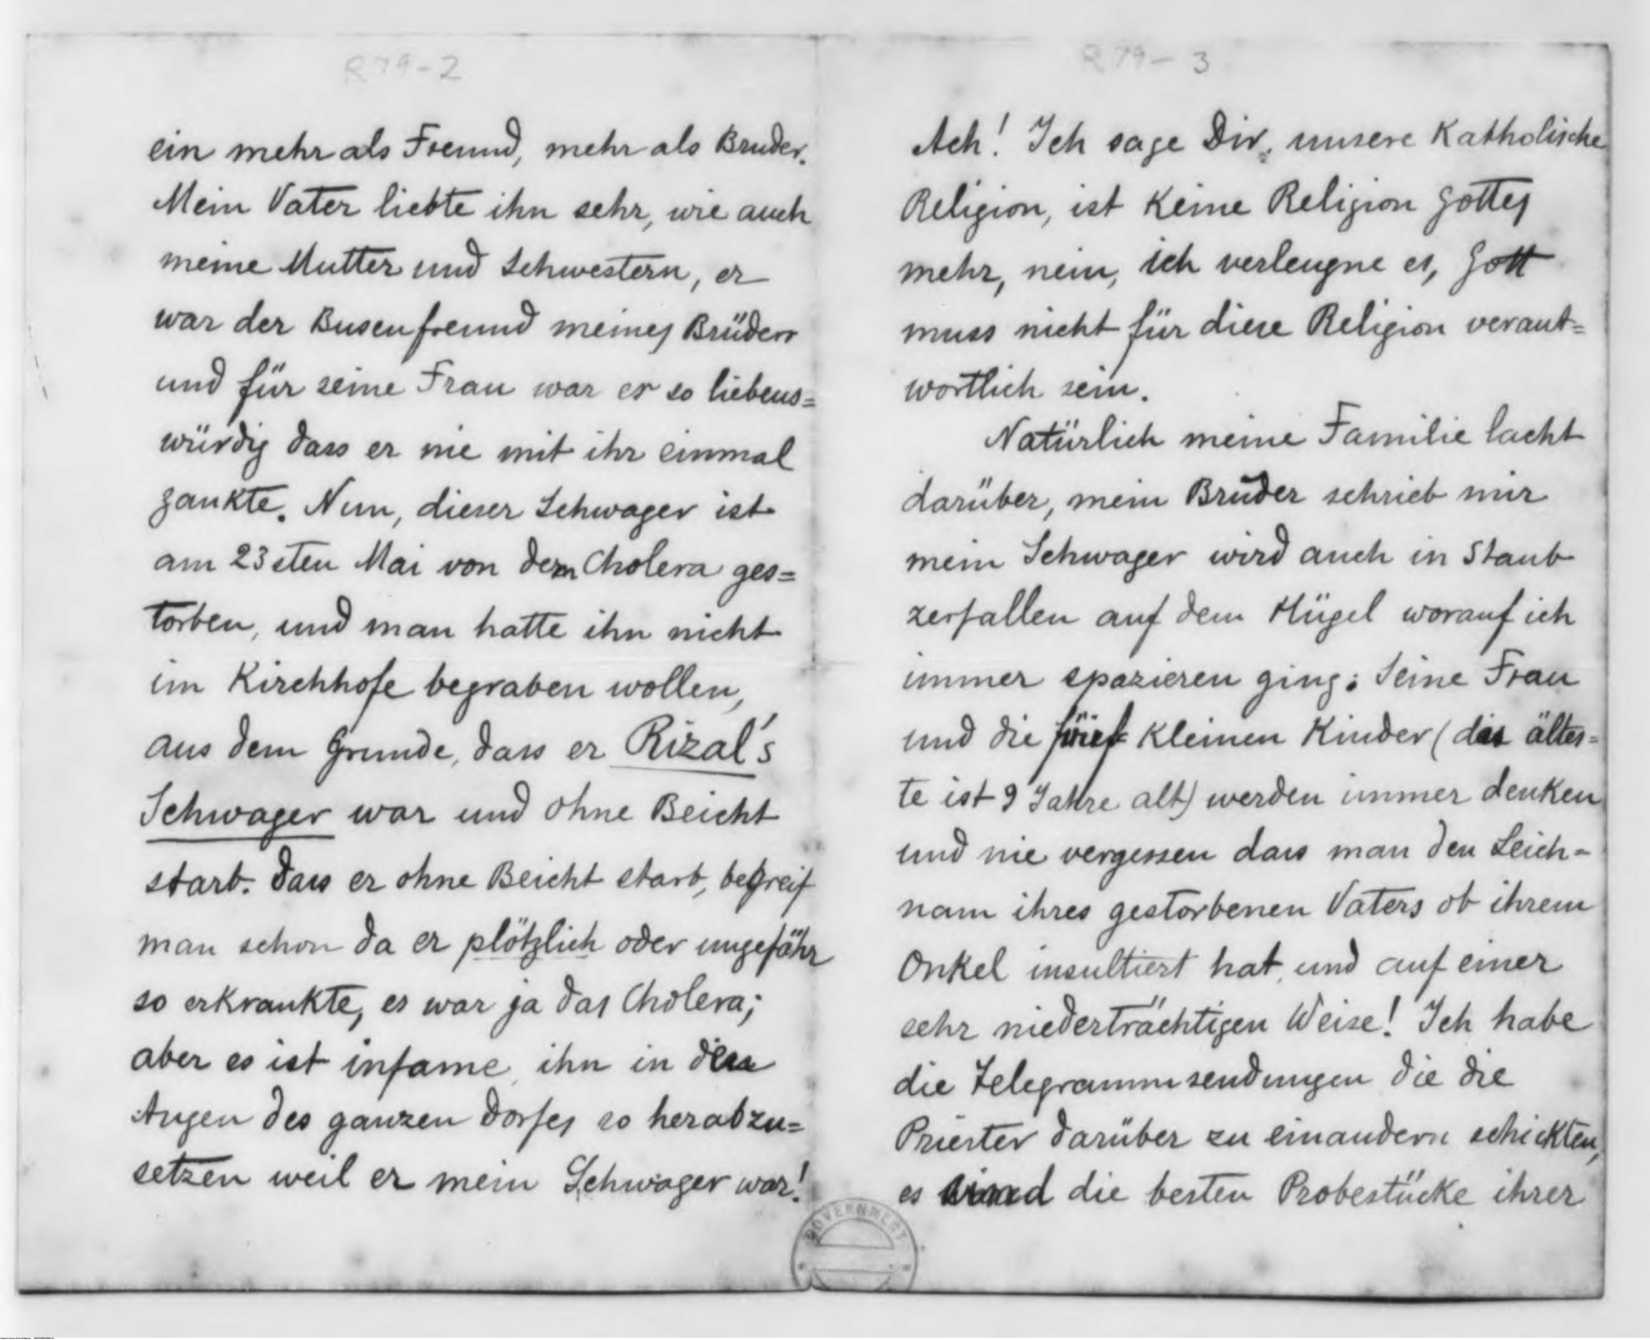 R 79-2
ein mehr als Freund, mehr als Bruder.
Mein Vater liebte ihn sehr, wie auch
meine Mutter und Schwestern, er
war der Busenfreund meines Brüders
und für seine Frau war er so liebens=
würdig dass er nie mit ihr einmal
zankte. Nun, dieser Schwager ist
am 23sten Mai von dem Cholera ges=
torben, und man hatte ihn nicht
im Kirchhofe begraben wollen,
aus dem Grunde, dass er Rizal's
Schwager war und ohne Beicht
starb. Dass er ohne Beicht starb, begreif
man schon da er plötzlich oder ungefähr
so erkrankte, es war ja das Cholera;
aber es ist infame, ihn in den
Augen des ganzen Dorfes so herabzu=
setzen weil er mein Schwager war!
R 79-3
Ach! Ich sage Dir, unsere Katholische
Religion, ist keine Religion Gottes
mehr, nein, ich verleugne es, Gott
muss nicht für diese Religion verant=
wortlich sein.
Natürlich meine Familie lacht
darüber, mein Bruder schrieb mir
mein Schwager wird auch in Staub
zerfallen auf dem Hügel worauf ich
immer spazieren ging. Seine Frau
und die kleinen Kinder (das ältes=
te ist 9 Jahre alt) werden immer denken
und nie vergessen dass man den Leich-
nam ihres gestorbenen Vaters ob ihrem
Onkel insultiert hat, und auf einer
sehr niederträchtigen Weise! Ich habe
die Telegrammsendungen die die
Priester darüber zu einandern schickten,
es sind die besten Probestücke ihrer
GOVERNMENT